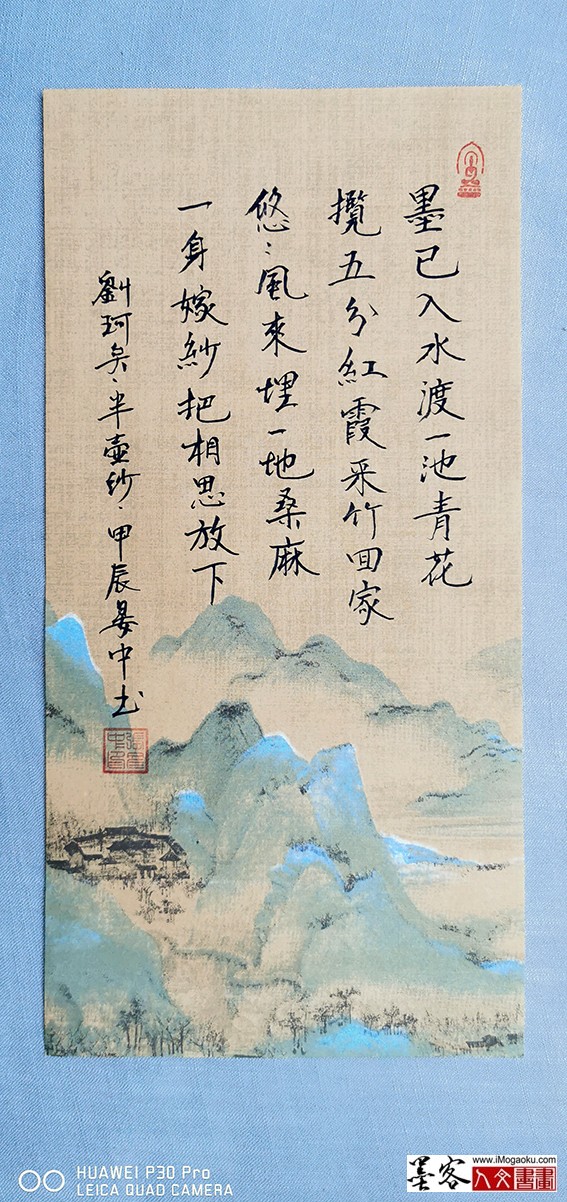 墨已入水渡一池青花
攬五分紅霞采竹回家
悠〻風來埋一地桑麻
一身嫁紗把相思放下
劉珂矣·半壺紗·甲辰晏中书
HUAWEI P30 Pro
LEICA QUAD CAMERA
www.iMogaoku.com
墨客
人文書畫